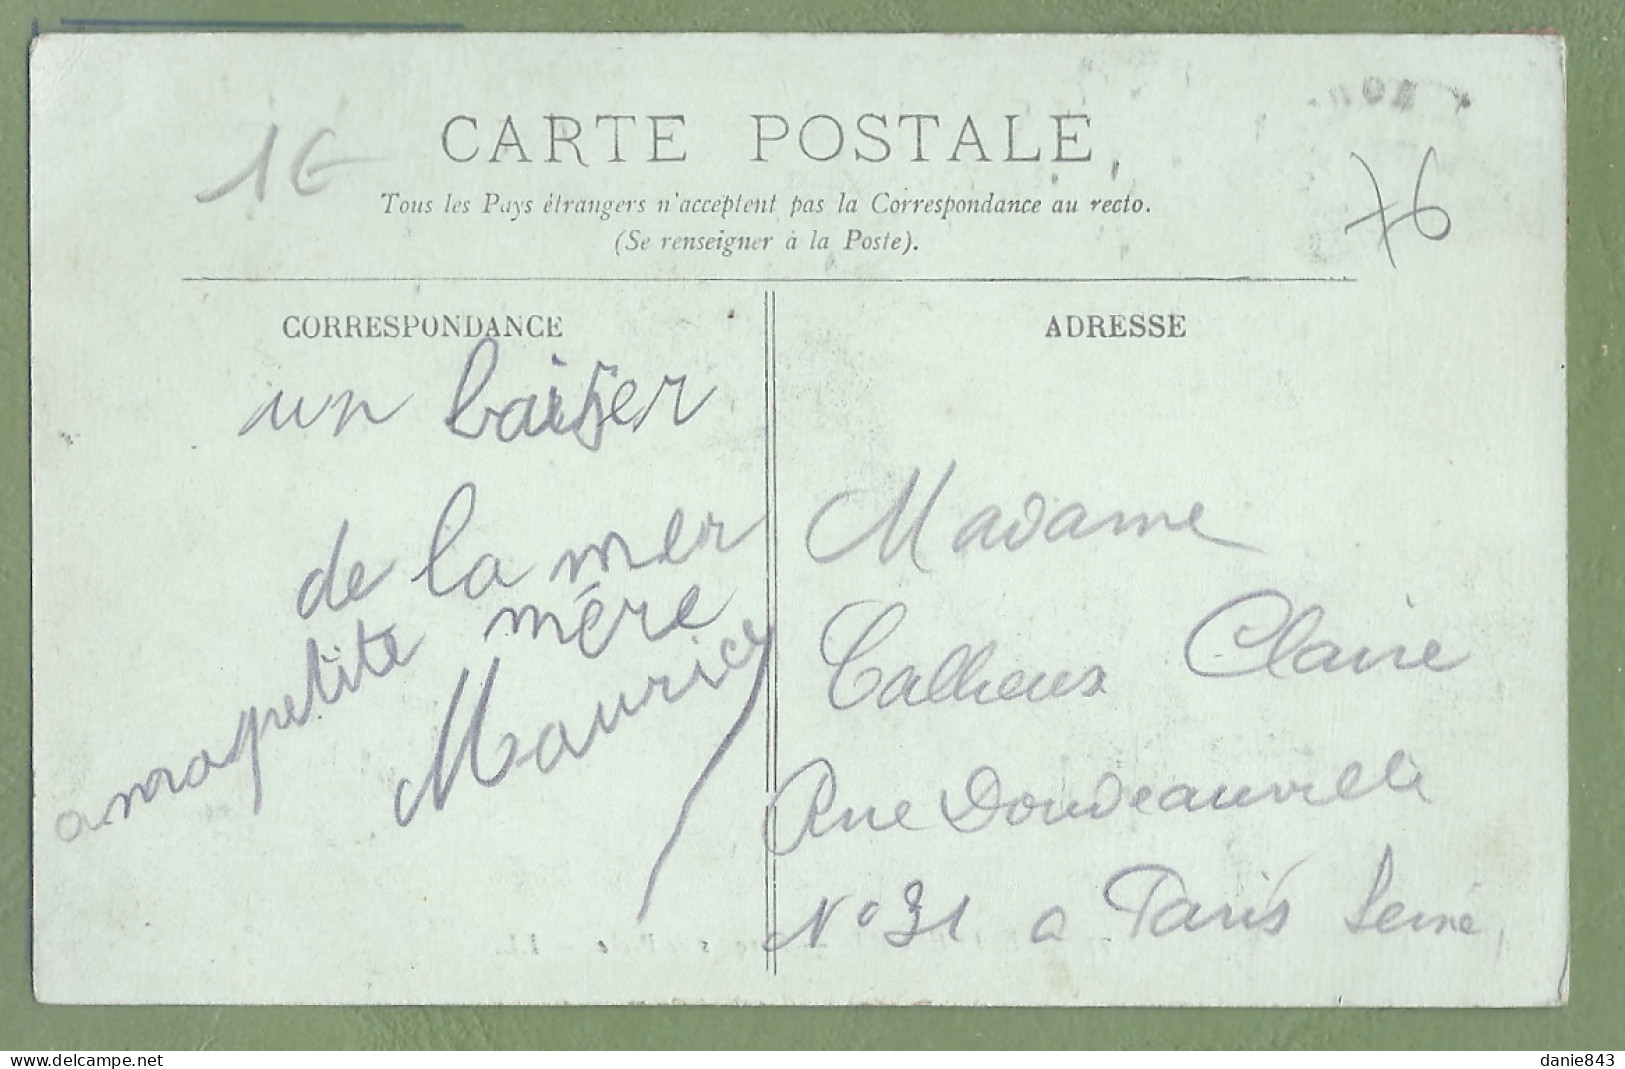 CARTE POSTALE
1€
Tous les Pays étrangers n'acceptent pas la Correspondance au recto.
(Se renseigner à la Poste).
76
CORRESPONDANCE
un baiser
de la mer
a ma petite mère
Maurice
ADRESSE
Madame
Calheux Claire
Rue Doudeauville
N° 31 a Paris Seine
danie843
www.delcampe.net